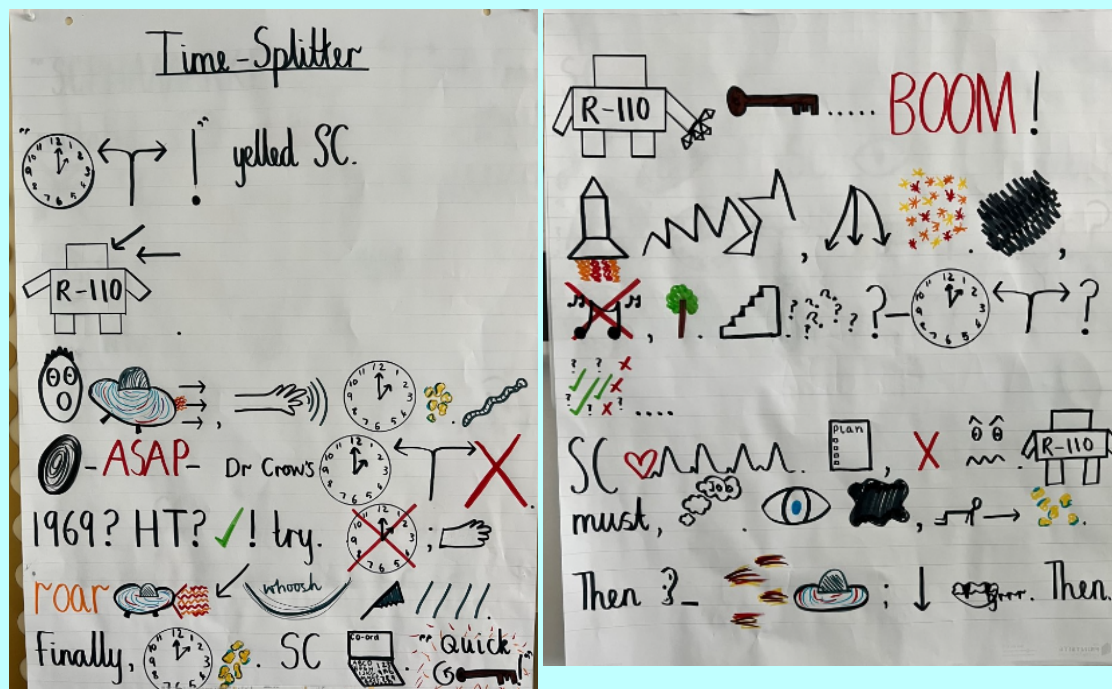 Time-Splitter
" ! " yelled SC.
R-110 .
,
- ASAP- Dr Crow's .
1969? HT? ! try. ;
roar whoosh
Finally, . SC Co-ord . "Quick !"
R-110 ..... BOOM!
, . ,
, . ? - ?
....
SC . Plan , . R-110
must, Job . , .
Then ; grrr. Then.